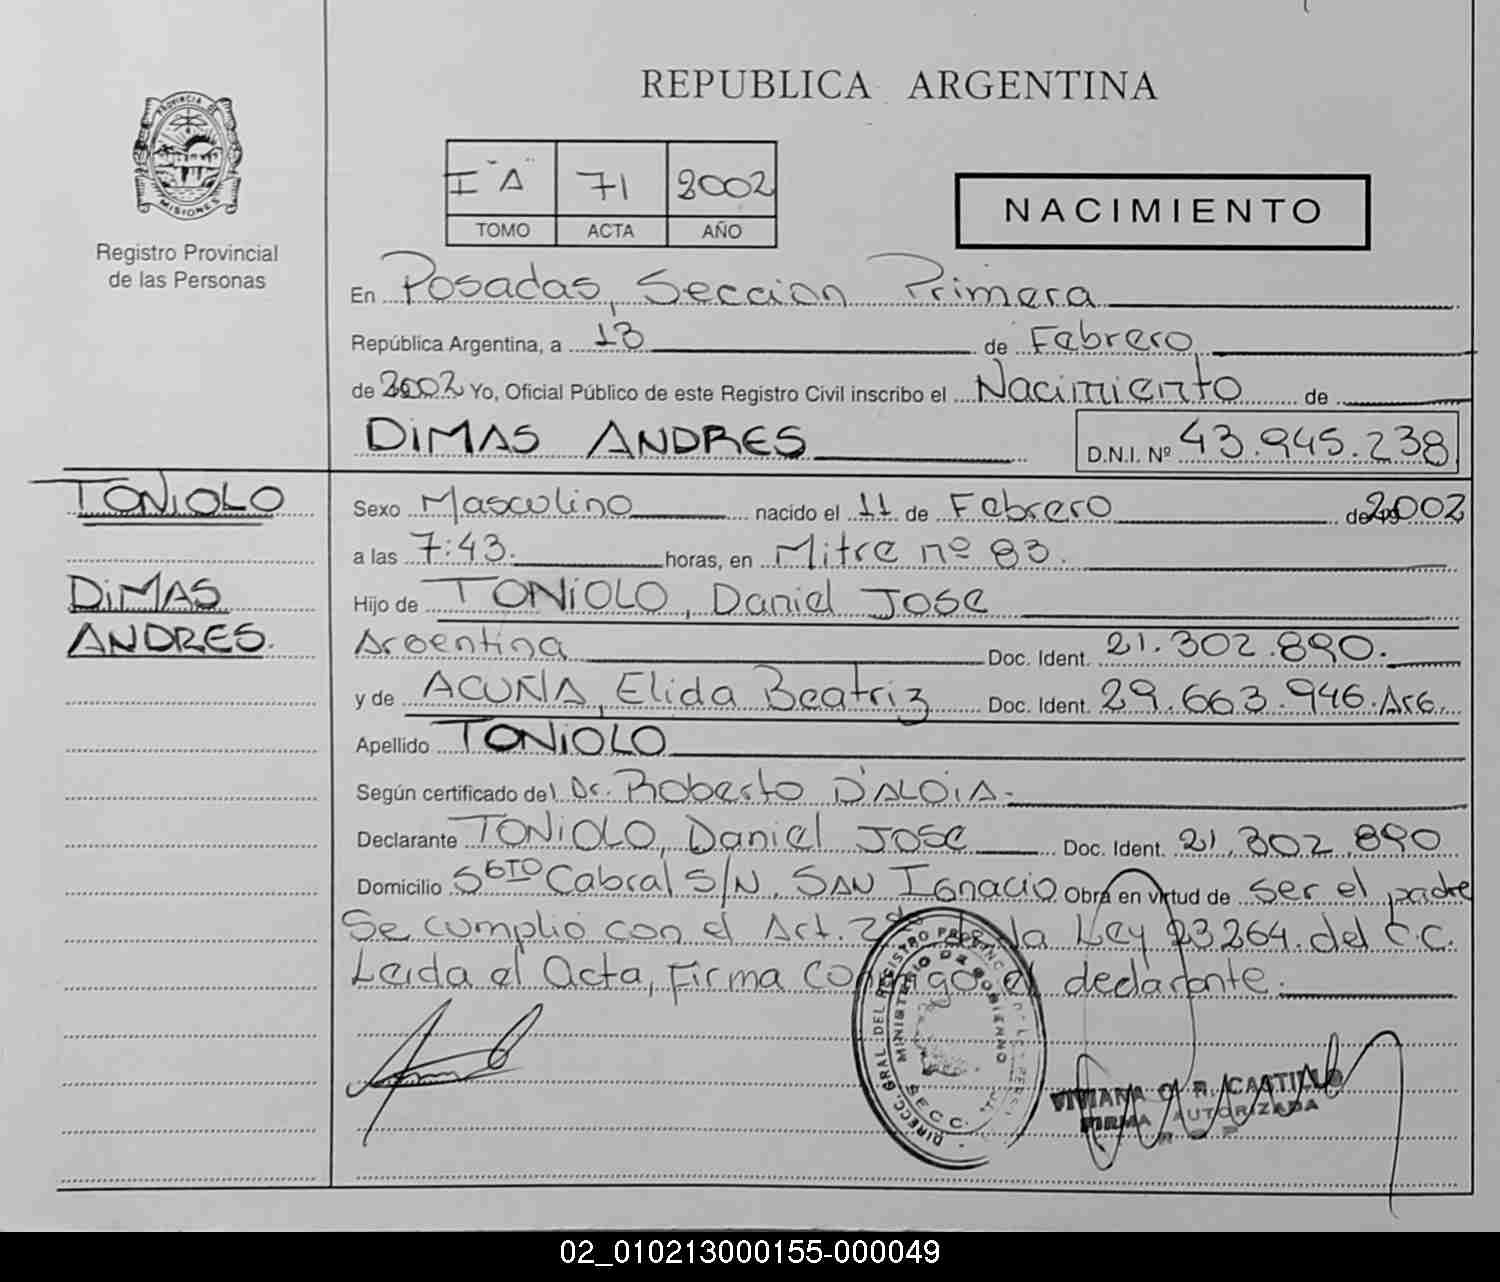 REPUBLICA ARGENTINA
PROVINCIA DE MISIONES
Registro Provincial
de las Personas
I "A" 71 2002
TOMO ACTA AÑO
NACIMIENTO
En Posadas, Seccion Primera
República Argentina, a 13 de Febrero
de 2002 Yo, Oficial Público de este Registro Civil inscribo el Nacimiento de
DIMAS ANDRES D.N.I. Nº 43.945.238
TONIOLO
DIMAS
ANDRES.
Sexo Masculino nacido el 11 de Febrero de 2002
a las 7:43. horas, en Mitre nº 83.
Hijo de TONIOLO, Daniel JOSE
Argentina Doc. Ident. 21.302.890.
y de ACUÑA, Elida Beatriz Doc. Ident. 29.663.946.Arg.
Apellido TONIOLO
Según certificado del Dr. Roberto D'ALOIA.
Declarante TONIOLO, Daniel JOSE Doc. Ident. 21.302.890
Domicilio Sgto Cabral S/N. SAN Ignacio Obra en virtud de ser el padre
Se cumplió con el Art. 2do de la Ley 23264. del C.C.
Leida el Acta, Firma conmigo el declarante.
DIRECC. GRAL. DEL REGISTRO PROVINC
MINISTERIO DE GOBIERNO
SECC.
VIVIANA O. R. CASTILLO
FIRMA AUTORIZADA
02_010213000155-000049